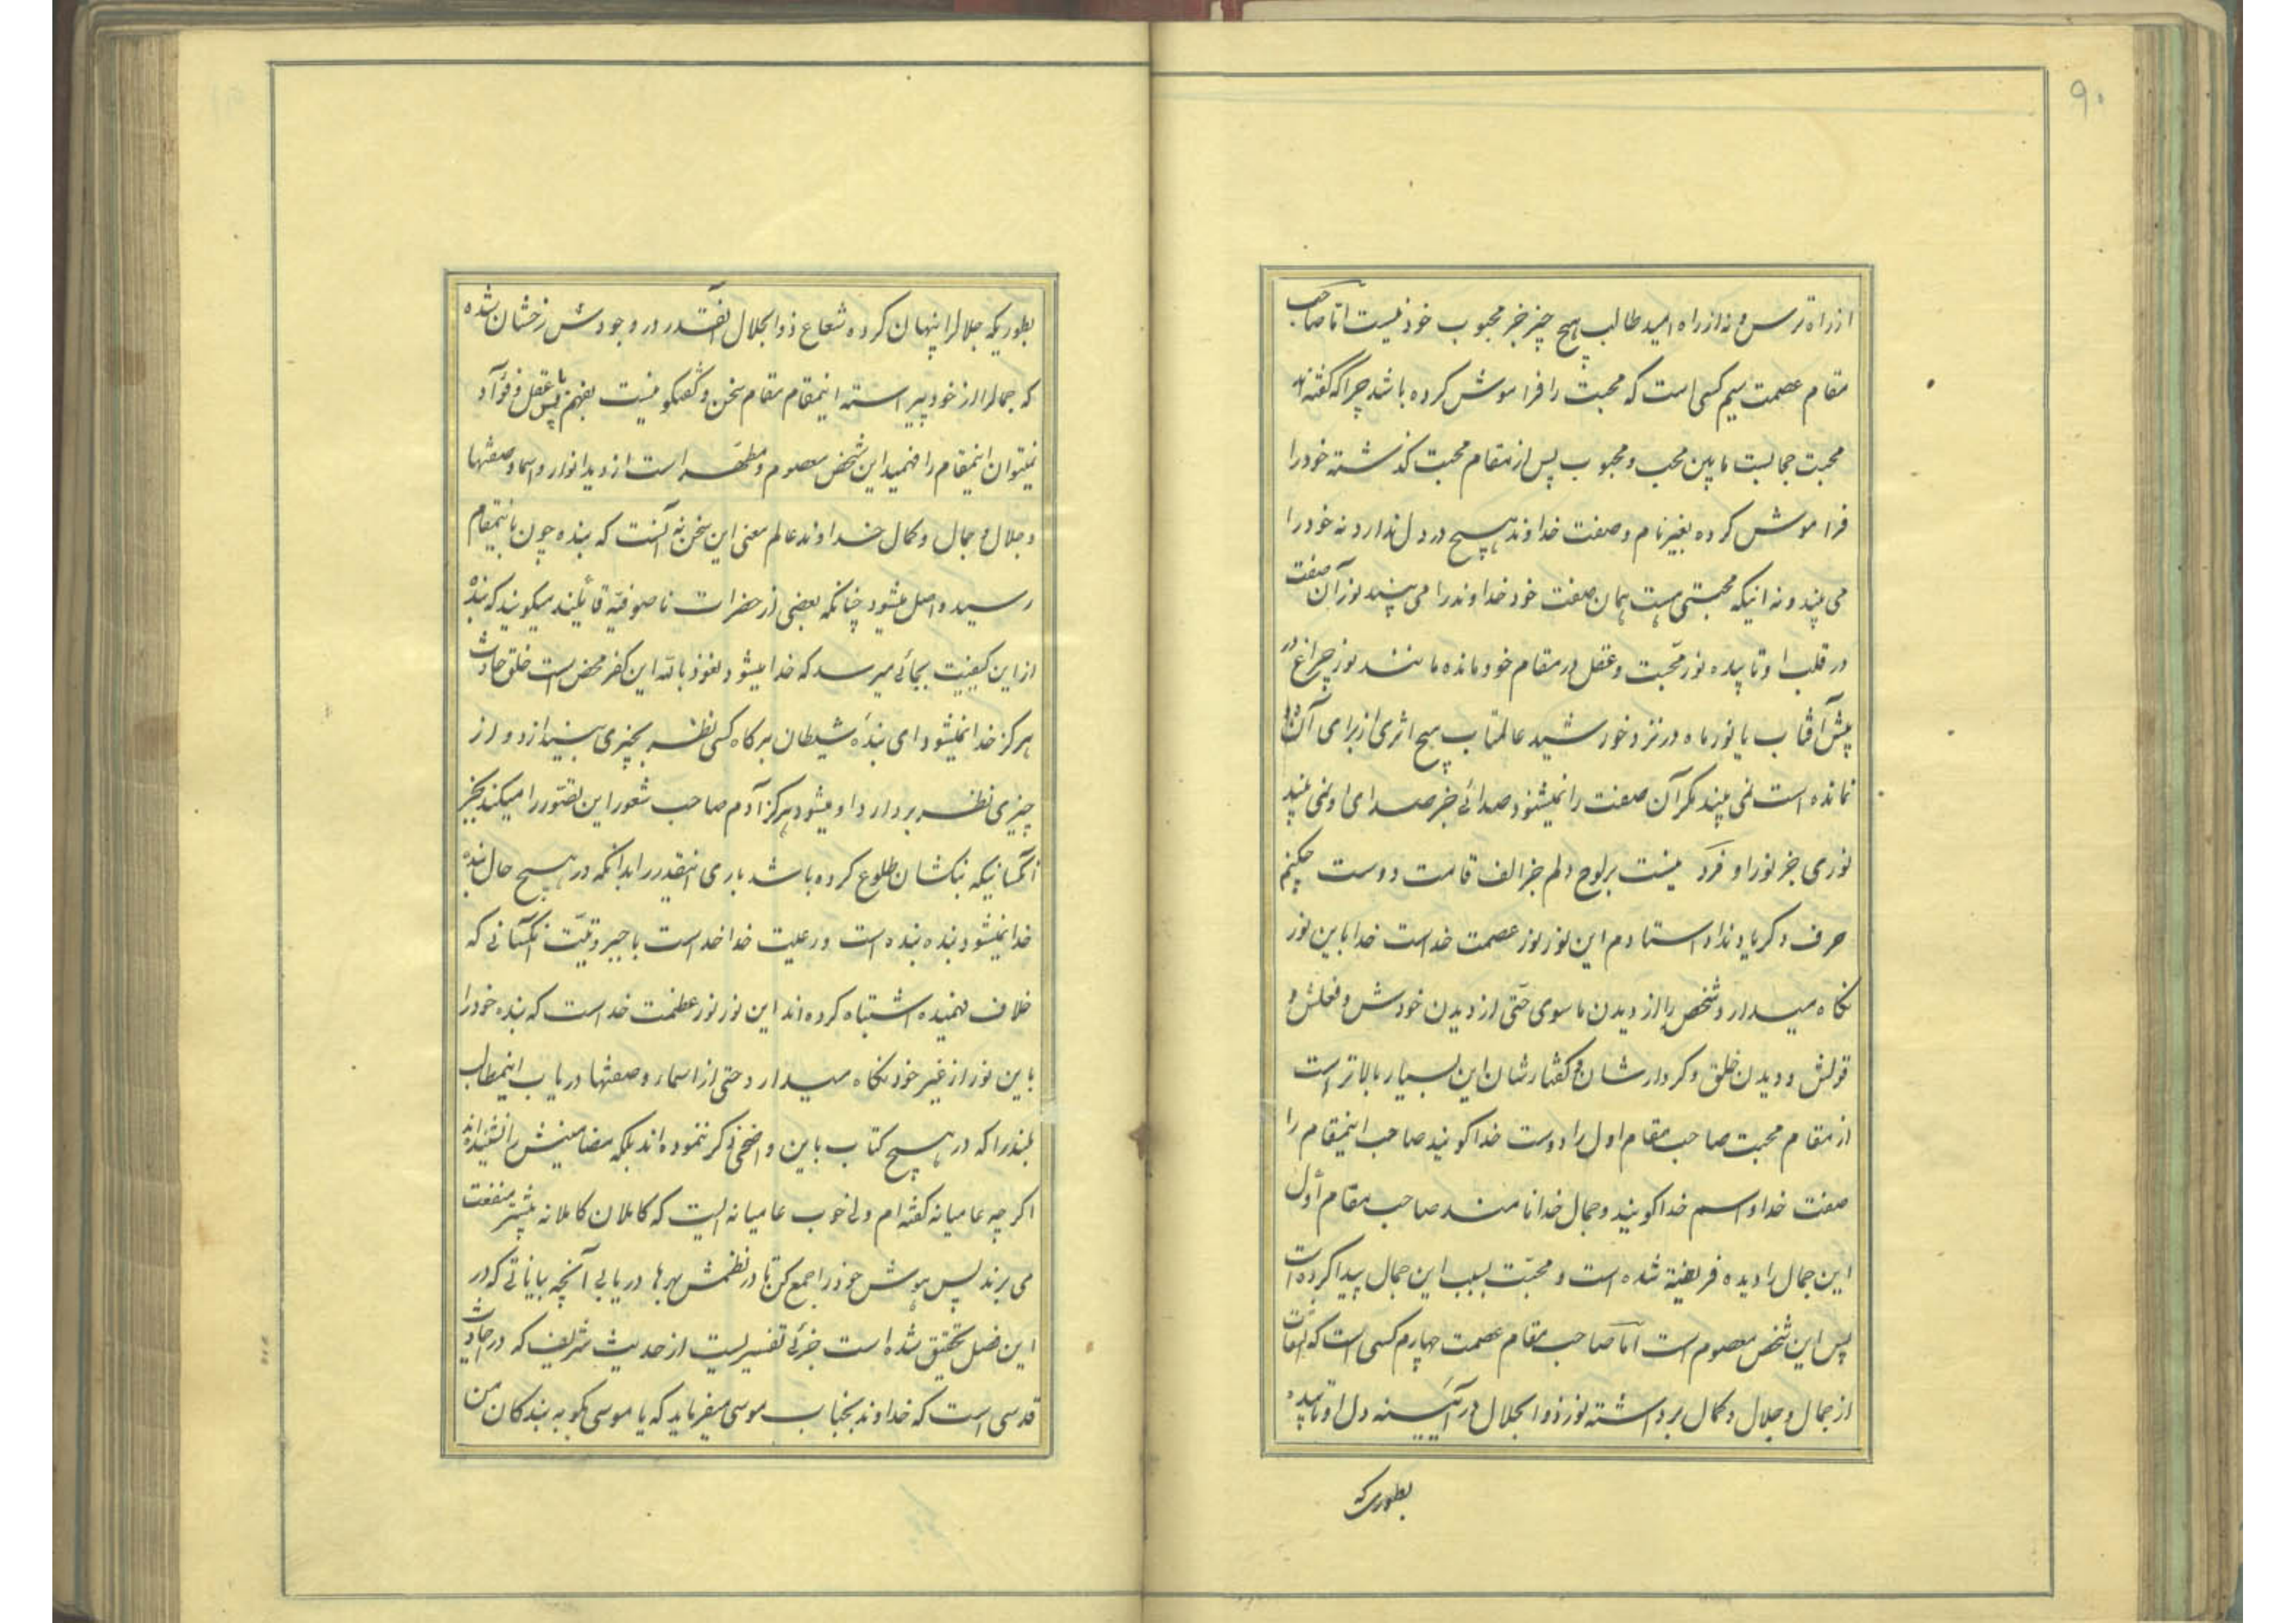 ۹۰
از راه ترس و نه از راه امید طالب هیچ چیز جز محبوب خود نیست امّا صاحب
مقام عصمت سیم کسی است که محبت را فراموش کرده باشد چراکه گفته‌اند
محبت حجابیست مابین محب و محبوب پس از مقام محبت گذشته خود را
فراموش کرده بغیر نام و صفت خداوند هیچ در دل ندارد نه خود را
می بیند و نه اینکه محبتی هست همان صفت خود خداوند را می بیند نور آن صفت
در قلب او تابیده نور محّبت و عقل در مقام خود مانده مانند نور چراغ در
پیش آفتاب یا نور ماه در نزد خورشید عالمتاب هیچ اثری از برای آن‌ها
نمانده است نمی بیند مگر آن صفت را نمیشنود صدائی جز صدای او نمی بیند
نوری جز نور او فرد نیست بر لوح دلم جز الف قامت دوست چکنم
حرف دگر یاد نداد استادم این نور نور عصمت خداست خدا باین نور
نگاه میدارد شخص را از دیدن ماسوی حتی از دیدن خودش و فعلش و
قولش و دیدن خلق و کردارشان و گفتارشان این بسیار بالاتر است
از مقام محبت صاحب مقام اول را دوست خدا گویند صاحب اینمقام را
صفت خدا و اسم خدا گویند و جمال خدا نامند صاحب مقام أول
این جمال را دیده فریفته شده است و محبّت بسبب این جمال پیدا کرده است
پس این شخص معصوم است امّا صاحب مقام عصمت چهارم کسی است که التفات
از جمال و جلال و کمال برداشته نور ذوالجلال در آئینه دل او تابیده
بطوری که
بطوریکه جلالرا پنهان کرده شعاع ذوالجلال آنقدر در وجودش رخشان شده
که جمالرا از خود پیراسته اینمقام مقام سخن و گفتگو نیست بفهم پس با عقل و فؤآد
نمیتوان اینمقام را فهمید این شخص معصوم و مطهّر است از دید انوار و اسما و صفتها
و جلال و جمال و کمال خداوند عالم معنی این سخن نه آنست که بنده چون باینمقام
رسید واصل میشود چنانکه بعضی از حضرات نا صوفیّه قائلند میگویند که بنده
از این کیفیت بجائی میرسد که خدا میشود نعوذ بالله این کفر محض است خلق حادث
هرگز خدا نمیشود ای بندۀ شیطان هرگاه کسی نظر بچیزی بیندازد و از
چیزی نظر بردارد او میشود هرگز آدم صاحب شعور این تصوّر را میکند بجز
آنکسانیکه بنگشان طلوع کرده باشد باری اینقدر را بدانکه در هیچ حال بنده
خدا نمیشود بنده بنده است و رعیت خدا خداست با جبروتیّت آنکسانی که
خلاف فهمیده اشتباه کرده‌اند این نور نور عظمت خداست که بنده خود را
باین نور از غیر خود نگاه میدارد حتی از اسماء و صفتها دریاب اینمطالب
بلند را که در هیچ کتاب باین واضحی ذکر ننموده‌اند بلکه مضامینش را نشنیده‌اند
اگرچه عامیانه گفته‌ام ولی خوب عامیانه ایست که کاملان کاملانه بیشتر منفعت
می برند پس هوش خود را جمع کن تا در نظمش بهرها دریابی آنچه بیاناتی که در
این فصل تحقیق شده است جزئی تفسیریست از حدیث شریف که در احادیث
قدسی است که خداوند بجناب موسی میفرماید که یا موسی بگو به بندگان من